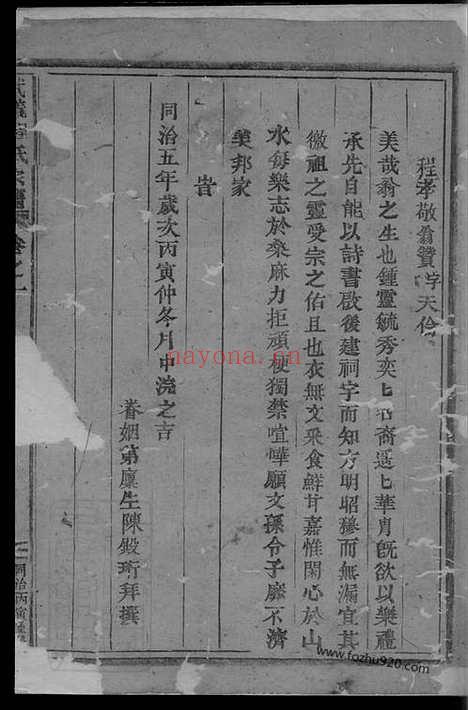 程孝敬翁贊字天佮
美哉翁之生也鍾靈毓秀奕奕裔遙遙華胄旣欲以樂禮
承先自能以詩書啟後建祠字而知方明昭穆而無漏宜其
徼祖之靈受宗之佑且也衣無文采食鮮甘嘉惟閑心於山
水每樂志於桑麻力拒頑梗獨禁喧嘩願文孫令子靡不濟
美邦家
旹
同治五年歲次丙寅仲冬月中浣之吉
眷姻弟廩生陳殿珩拜撰
氏
卷之一
同治丙寅
nayona.cn
www.fozhu920.com